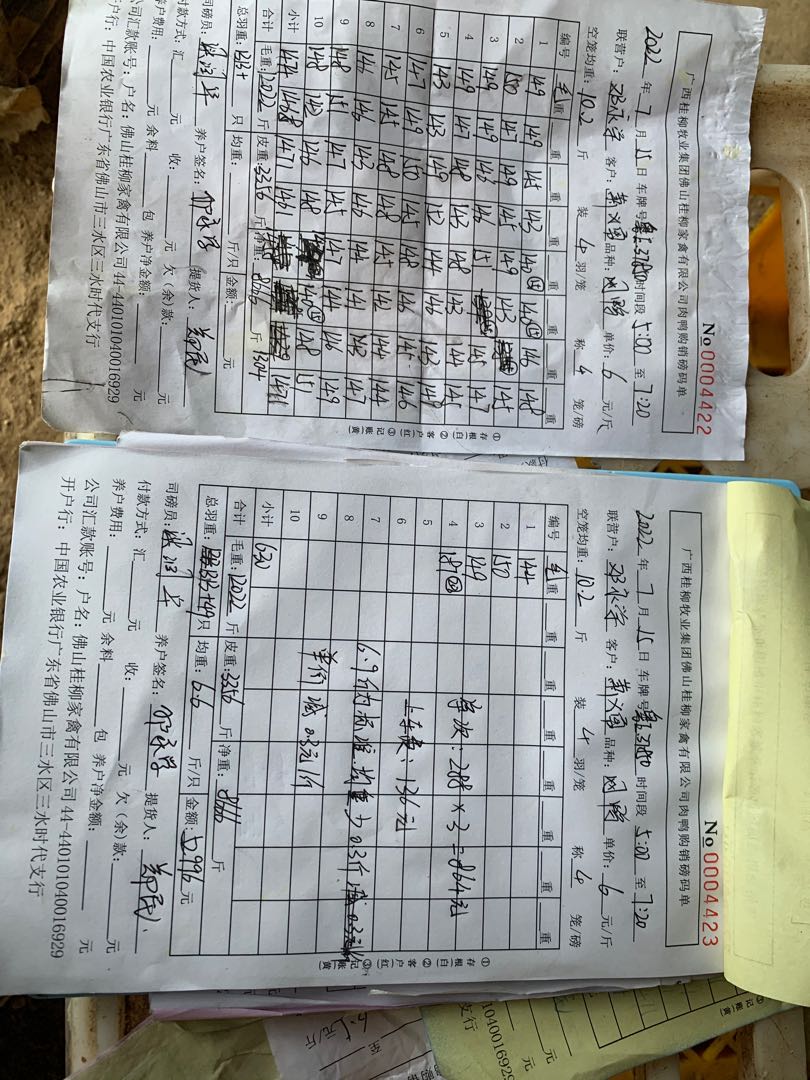 广西桂柳牧业集团佛山桂柳家禽有限公司肉鸭购销磅码单
No 0004422
2022 年 7 月 15 日 车牌号 时间段 5:00 至 7:20
联营户: 邓永学 客户: 品种: 肉鸭 单价: 6 元/斤
空笼均重: 10.2 斤 装 4 羽/笼 称 4 笼/磅
编号 毛重 重 重 重 重 重 重 重
1 149 149 145 143 140 ⑫ 145 146 148
2 150 147 149 145 149 143 145
3 149 149 146 146 151 145 147
4 149 147 148 143 148 143 144 145
5 143 143 149 152 144 146 143 148
6 147 149 150 145 146 146 145 146
7 145 145 148 148 145 142 144 144
8 146 146 143 146 144 141 143 147
9 148 151 147 145 147 144 146 149
10 148 142 146 148 148 151
小计 1474 1468 1471 1461 1471
合计 毛重: 12022 斤 皮重: 3356 斤 净重: 8666 斤 1304
总羽重: 只 均重: 斤/只 金额: 元
司磅员: 养户签名: 邓永学 提货人: 郑民
付款方式: 汇 元 收: 元 欠(余)款: 元
养户费用: 元 余料 包 养户净金额: 元
公司汇款账号: 户名: 佛山桂柳家禽有限公司 44-440101040016929
开户行: 中国农业银行广东省佛山市三水区三水时代支行
①存根(白) ②客户(红) ③记账(黄)
广西桂柳牧业集团佛山桂柳家禽有限公司肉鸭购销磅码单
No 0004423
2022 年 7 月 15 日 车牌号 时间段 5:00 至 7:20
联营户: 邓永学 客户: 品种: 肉鸭 单价: 6 元/斤
空笼均重: 10.2 斤 装 4 羽/笼 称 4 笼/磅
编号 毛重 重 重 重 重 重 重 重
1 144
2 150
3 149
4 187
5
6
7
8
9
10
小计 630
单次: 288×3=864元
上车费: 136元
6.9斤为标准.均重少0.3斤.减0.3元/斤
单价减0.3元/斤
合计 毛重: 12022 斤 皮重: 3356 斤 净重: 8666 斤
总羽重: 只 均重: 6.6 斤/只 金额: 51996 元
司磅员: 养户签名: 邓永学 提货人: 郑民
付款方式: 汇 元 收: 元 欠(余)款: 元
养户费用: 元 余料 包 养户净金额: 元
公司汇款账号: 户名: 佛山桂柳家禽有限公司 44-440101040016929
开户行: 中国农业银行广东省佛山市三水区三水时代支行
①存根(白) ②客户(红) ③记账(黄)
1040016929
支行
元/斤